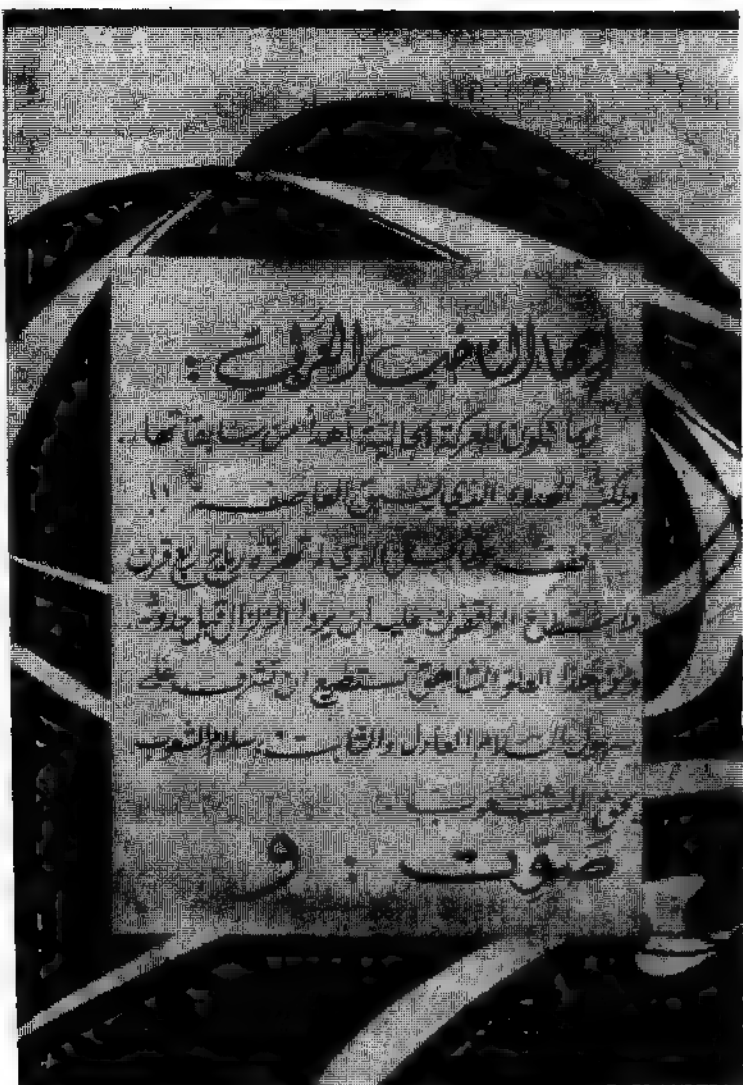 أيها الناخب العربي :
ربما تكون المعركة الحالية أهدأ من سابقاتها ..
ولكنه الهدوء الذي يسبق العاصفة !!
فقف على الذي لم تهزه رياح ربع قرن
واستطاع الواقفون عليه أن يروا الزلزال قبل حدوثه .
ومن هذا العلو الشاهق تستطيع ان تشرف على
سهول السلام العادل والثابت ، سلام الشعوب
بحق الشعوب .
صوّت : و